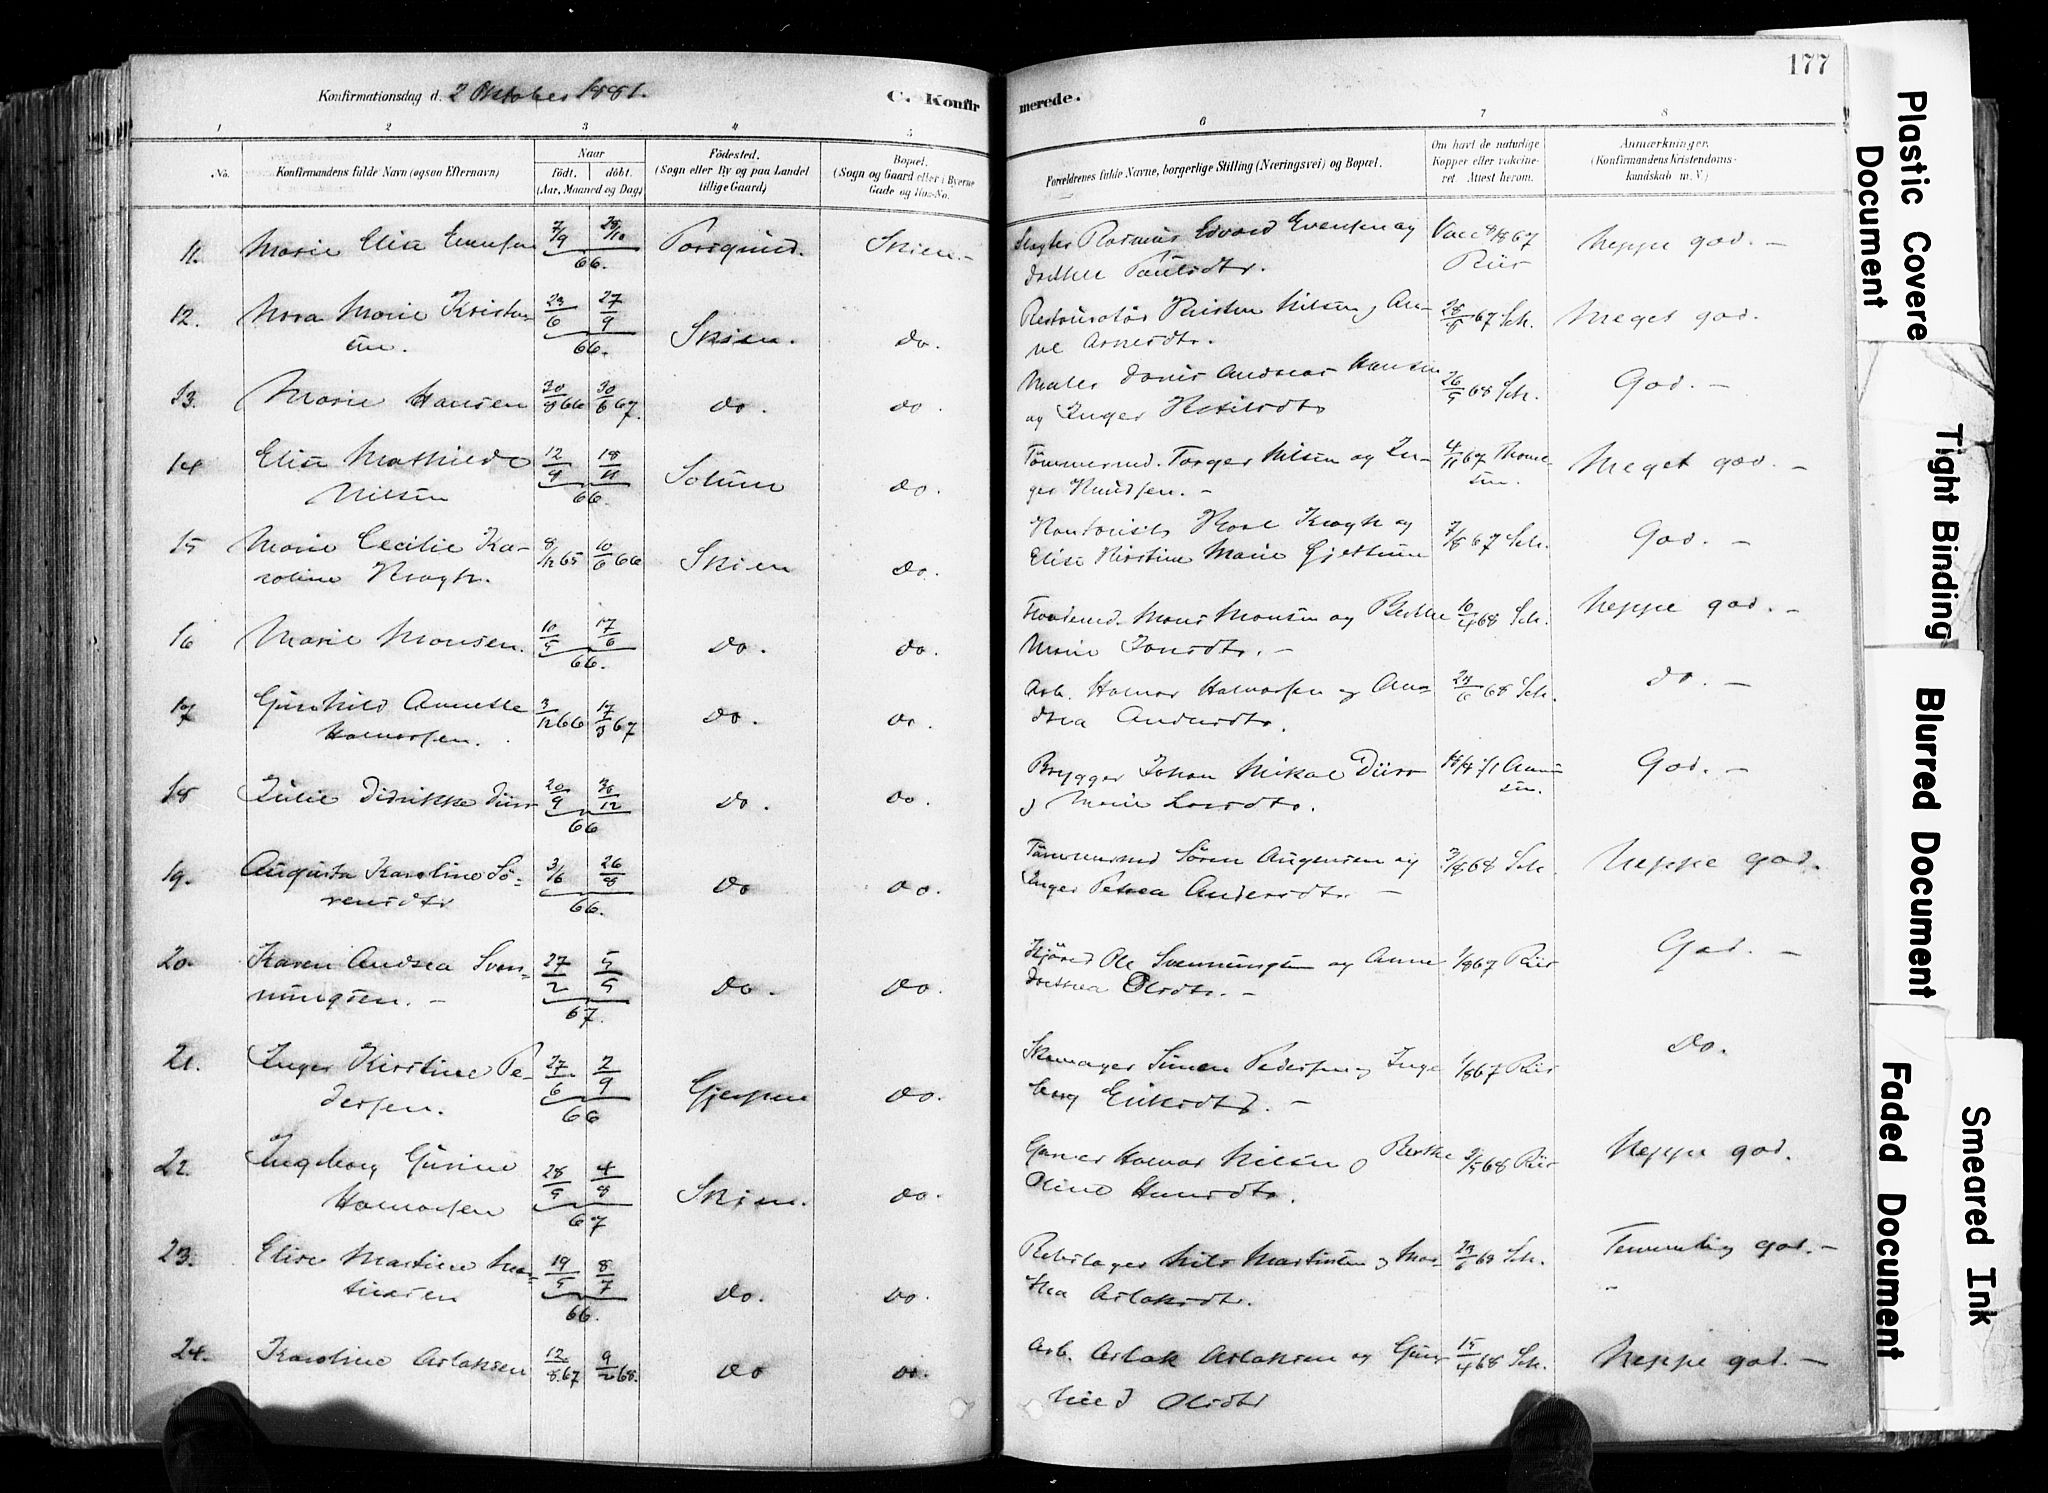 177
Konfirmationsdag d. 2 Oktober 1881.
C. Konfirmerede.
1 2 3 4 5 6 7 8
No.
Konfirmandens fulde Navn (ogsaa Efternavn)
Naar
Födt. döbt.
(Aar, Maaned og Dag)
Födested.
(Sogn eller By og paa Landet
tillige Gaard)
Bopæl.
(Sogn og Gaard eller i Byerne
Gade og Hus-No.
Forældrenes fulde Navne, borgerlige Stilling (Næringsvei) og Bopæl.
Om havt de naturlige
Kopper eller vaccine-
ret. Attest herom.
Anmærkninger.
(Konfirmandens Kristendoms-
kundskab m. V.)
11. Marie Elise Evensen 7/9 28/10 66. Porsgrund. Skien.- Rasmus Edvard Evensen og Vacc 8/8 67 Neppe god. -
Dorthe Paulsdtr. Riis
12. Nora Marie Kristen- 23/6 27/9 66. Skien. do. Restauratör Kristen Nilsen og An- 28/8 67 Sch. Meget god.
sen. ne Arnesdtr.
13. Marie Hansen 30/8 66 30/6 67. do. do. Maler Andreas Hansen 26/5 68 Sch. God. -
og Inger Ketilsdtr
14 Elise Mathilde 12/9 18/11 66. Solum do. Tömmermd. Torger Nilsen og In- 4/11 67 Thome- Meget god. -
Nilsen ger Knudsen. - sen.
15 Marie Cecilie Ka- 8/12 65 10/6 66 Skien do. Karl Krogh og 7/8 67 Sch. God. -
roline Krogh. Elise Kirstine Marie
16 Marie Monsen. 10/5 17/6 66. do. do. Mons Monsen og Berthe 10/4 68 Sch. Neppe god. -
Marie Jonsdtr. -
17 Gunhild Annette 3/12 66 17/3 67 do. do. Arb. Halvor Halvorsen og An- 23/6 68 Sch. do. -
Halvorsen. drea Andersdtr.
18 Julie Didrikke Dürr 20/9 30/12 66 do. do. Brygger Johan Mikal Dürr 18/4 71 God. -
og Marie Larsdtr.
19. Augusta Karoline Sö- 3/6 26/8 66. do do. Tömmermd Sören Augensen og 3/8 68 Sch. Neppe god.
rensdtr Inger Petrea Andersdtr -
20. Karen Andrea Sven- 27/2 5/5 67. do. do. Ole Svennungsen og Anne 1/8 67 Riis God. -
nungsen. - Olsdtr. -
21. Inger Kirstine Pe- 27/6 2/9 66 Gjerpen do. Skomager Simen Pedersen og Inge 1/8 67 Riis do.
dersen. borg Eriksdtr. -
22. Ingeborg Gurine 28/5 4/8 67 Skien. do. Garver Halvor Nilsen og Berthe 3/5 68 Riis Neppe god.
Halvorsen Oline
23. Elise Martine Mar- 19/5 8/7 66. do. do. Rebslager Nils Martinsen og Mar- 23/6 68 Sch. Temmelig god. -
tinsen thea Aslaksdtr.
24. Karoline Aslaksen 12/8 67 9/2 68. do do. Arb. Aslak Aslaksen og Gun- 15/4 68 Sch. Neppe god. -
hild Olsdtr
Plastic Covere
Document
Tight Binding
Blurred Document
Faded Document
Smeared Ink